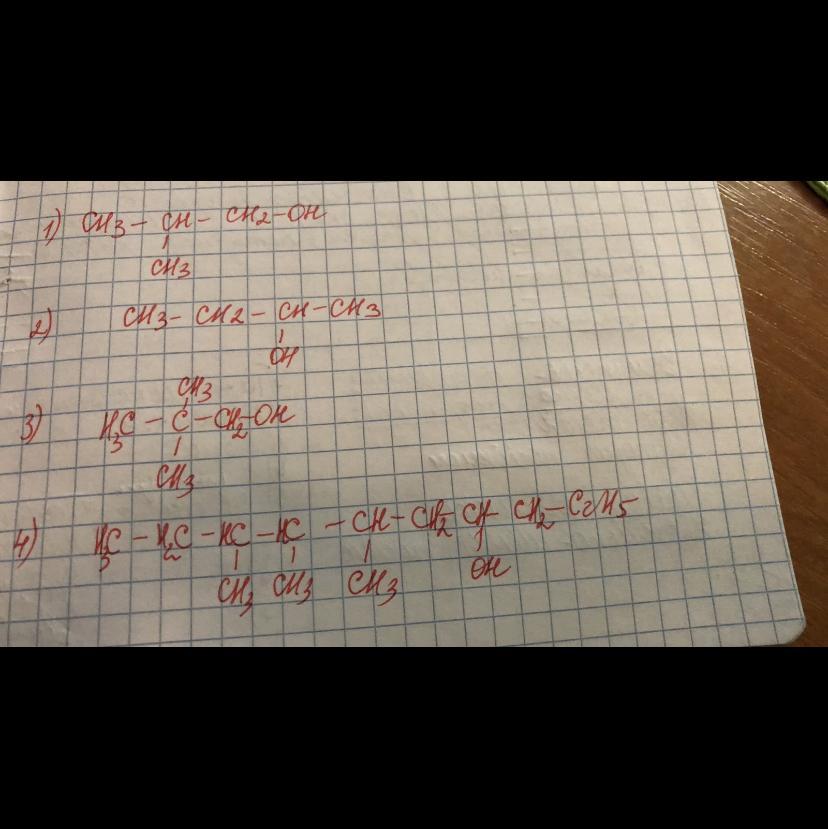 1) CH3 - CH - CH2 - OH
CH3
2) CH3 - CH2 - CH - CH3
OH
CH3
3) H3C - C - CH2 - OH
CH3
4) H3C - H2C - HC - HC - CH - CH2 - CH - CH2 - C2H5
CH3 CH3 CH3 OH